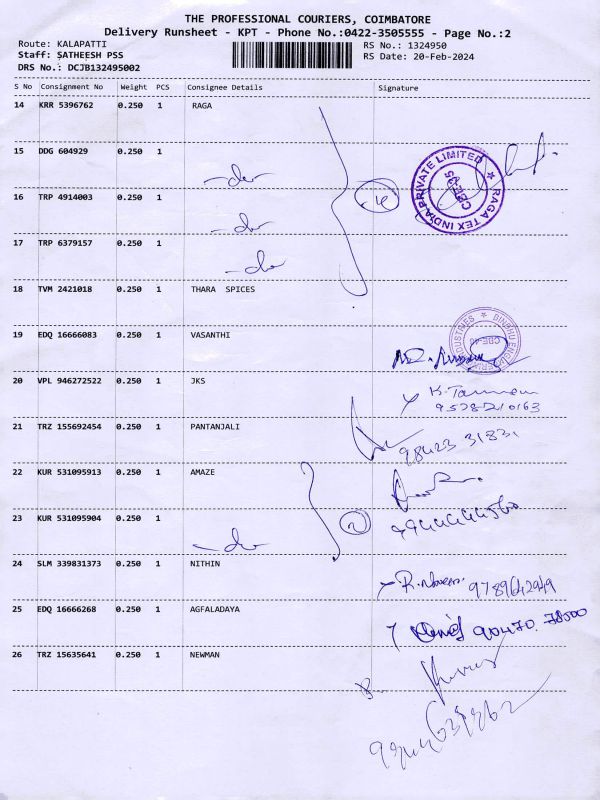 THE PROFESSIONAL COURIERS, COIMBATORE
Delivery Runsheet - KPT - Phone No.:0422-3505555 - Page No.:2
Route: KALAPATTI RS No.: 1324950
Staff: SATHEESH PSS RS Date: 20-Feb-2024
DRS No.: DCJB132495002
S No Consignment No Weight PCS Consignee Details Signature
14 KRR 5396762 0.250 1 RAGA
15 DDG 604929 0.250 1
-do-
RAGA TEX INDIA PRIVATE LIMITED ★
CBE-35
16 TRP 4914003 0.250 1
-do-
17 TRP 6379157 0.250 1
-do-
18 TVM 2421018 0.250 1 THARA SPICES
19 EDQ 16666083 0.250 1 VASANTHI
20 VPL 946272522 0.250 1 JKS
9578210163
21 TRZ 155692454 0.250 1 PANTANJALI
98423 31831
22 KUR 531095913 0.250 1 AMAZE
23 KUR 531095904 0.250 1
-do-
2
9944444560
24 SLM 339831373 0.250 1 NITHIN
9789642949
25 EDQ 16666268 0.250 1 AGFALADAYA
90470 78500
26 TRZ 15635641 0.250 1 NEWMAN